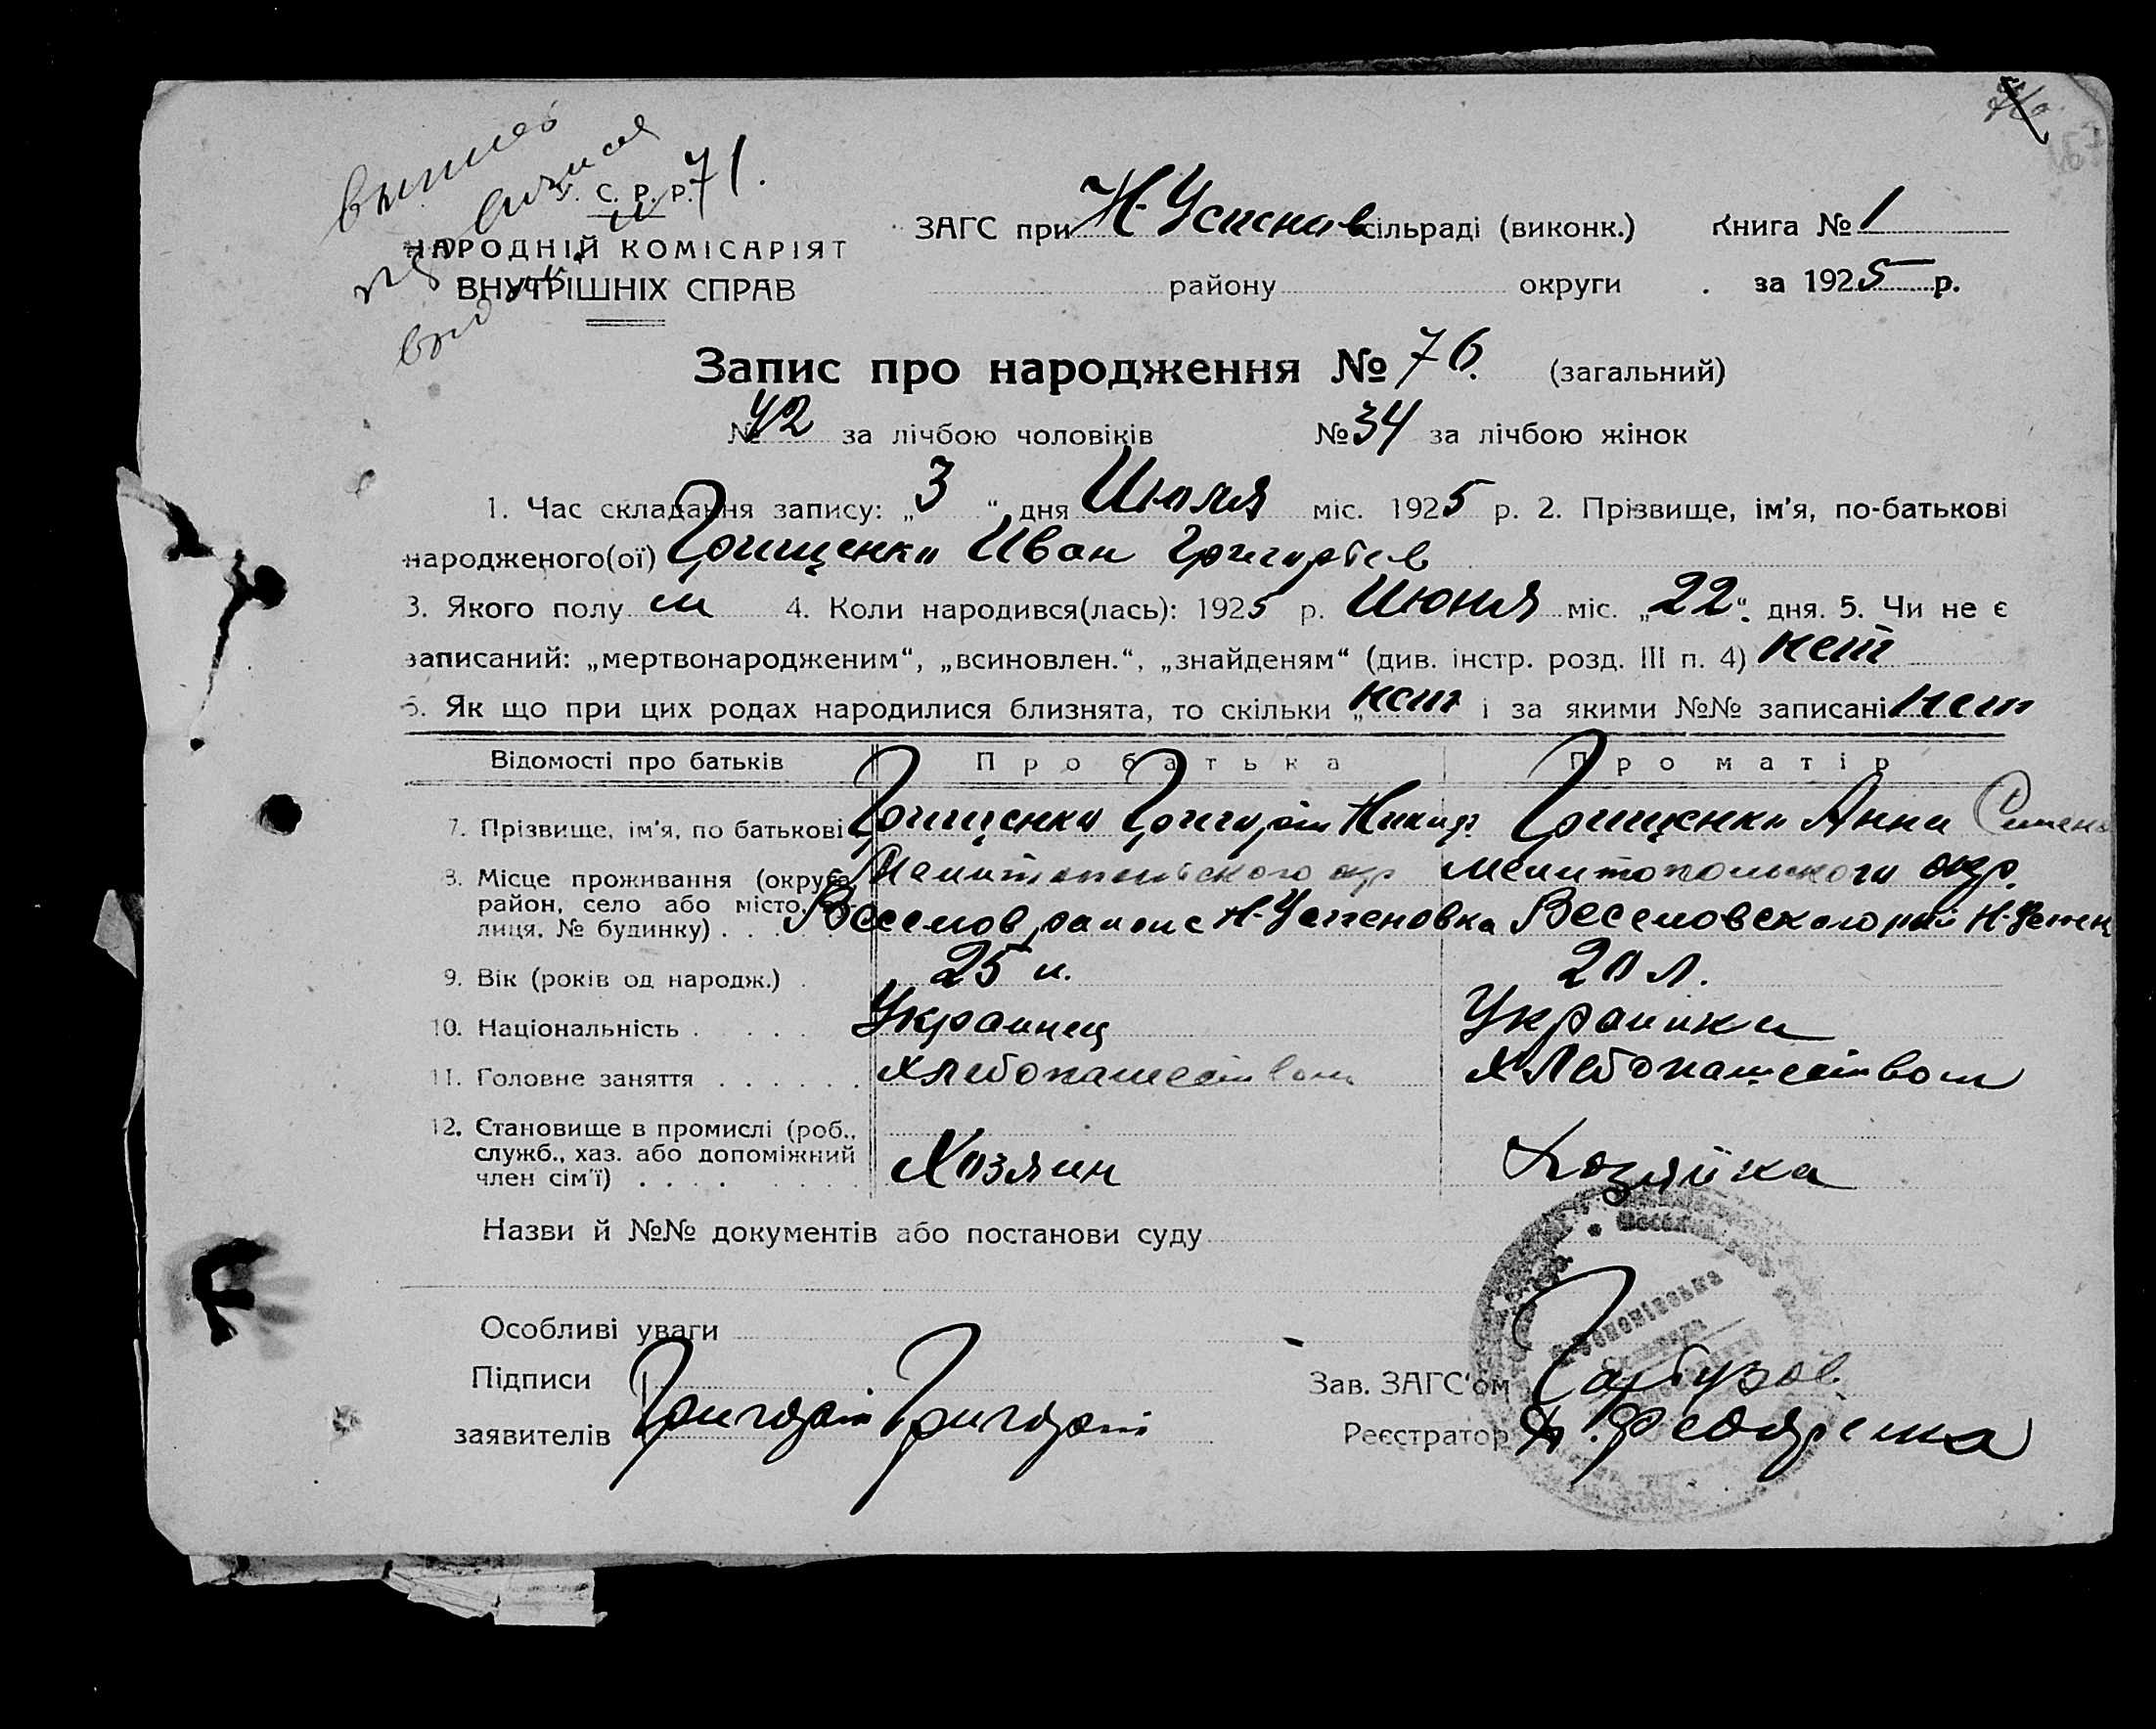 С. Р. Р. 71.
НАРОДНІЙ КОМІСАРІЯТ
ВНУТРІШНІХ СПРАВ
ЗАГС при Н-Успенов сільраді (виконк.) Книга № 1
району округи за 1925 р.
Запис про народження № 76. (загальний)
№ 42 за лічбою чоловіків № 34 за лічбою жінок
1. Час складання запису: „3“ дня Июля міс. 1925 р. 2. Прізвище, ім'я, по-батькові
народженого(ої) Грищенко Иван Григорьев
3. Якого полу м 4. Коли народився(лась): 1925 р. Июня міс. „22“ дня. 5. Чи не є
записаний: „мертвонародженим“, „всиновлен.“, „знайденям“ (див. інстр. розд. III п. 4) нет
6. Як що при цих родах народилися близнята, то скільки „нет і за якими №№ записані нет
Відомості про батьків Про батька Про матір
7. Прізвище, ім'я, по батькові Грищенко Григорий Никиф Грищенко Анна Семен
8. Місце проживання (округа, Мелитопольского окр Мелитопольского окр.
район, село або місто,
лиця, № будинку) . . . . . Веселов района Н-Успеновка Веселовского рай Н-Успен
9. Вік (років од народж.) . 25 л. 20 л.
10. Національність . . . . . Украинец Украинка
11. Головне заняття . . . . . . хлебопашеством хлебопашеством
12. Становище в промислі (роб.,
служб., хаз. або допоміжний
член сім'ї) . . . . Хозяин Хозяйка
Назви й №№ документів або постанови суду
Особливі уваги
Підписи
заявителів Григорий Григорий
Зав. ЗАГС'ом Гарбузов
Реєстратор